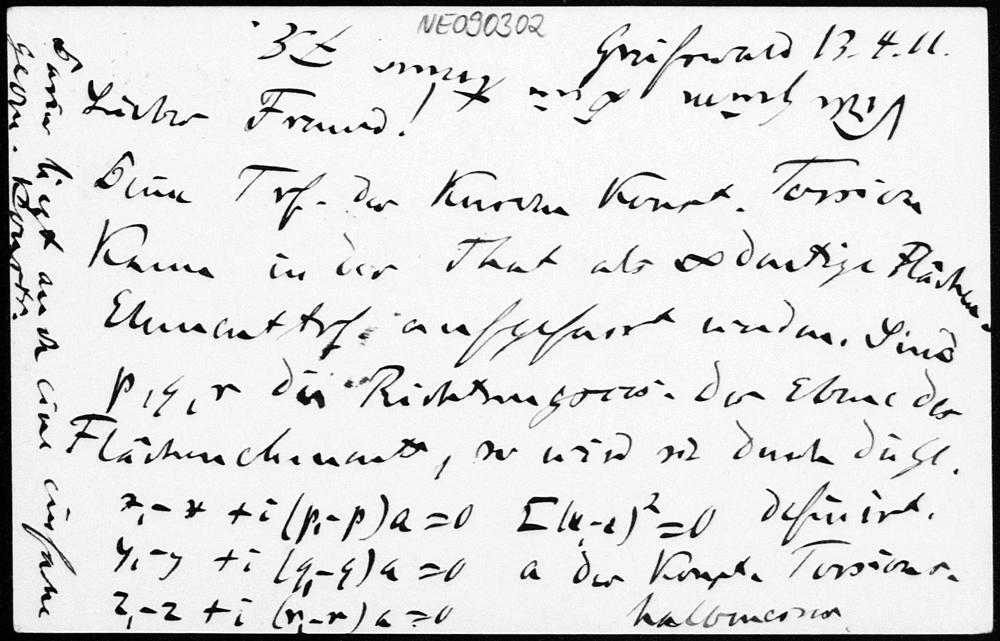 NE090302
Greifswald 13.4.11.
Lieber Freund!
Deine Trf. der Kurven konst. Torsion
kann in der That als ∞deutige Flächen
Elementtrf. aufgefasst werden. Sind
p, q, r die Richtungscos. der Ebene des
Flächenelements, so wird sie durch die Gl.
x₁-x + i(p₁-p)a = 0 Σ(x₁-x)² = 0 definirt.
y₁-y + i(q₁-q)a = 0 a der konst. Torsions-
z₁-z + i(r₁-r)a = 0 halbmesser
Darin liegt auch eine einfache
geom. Konstr.
Viele